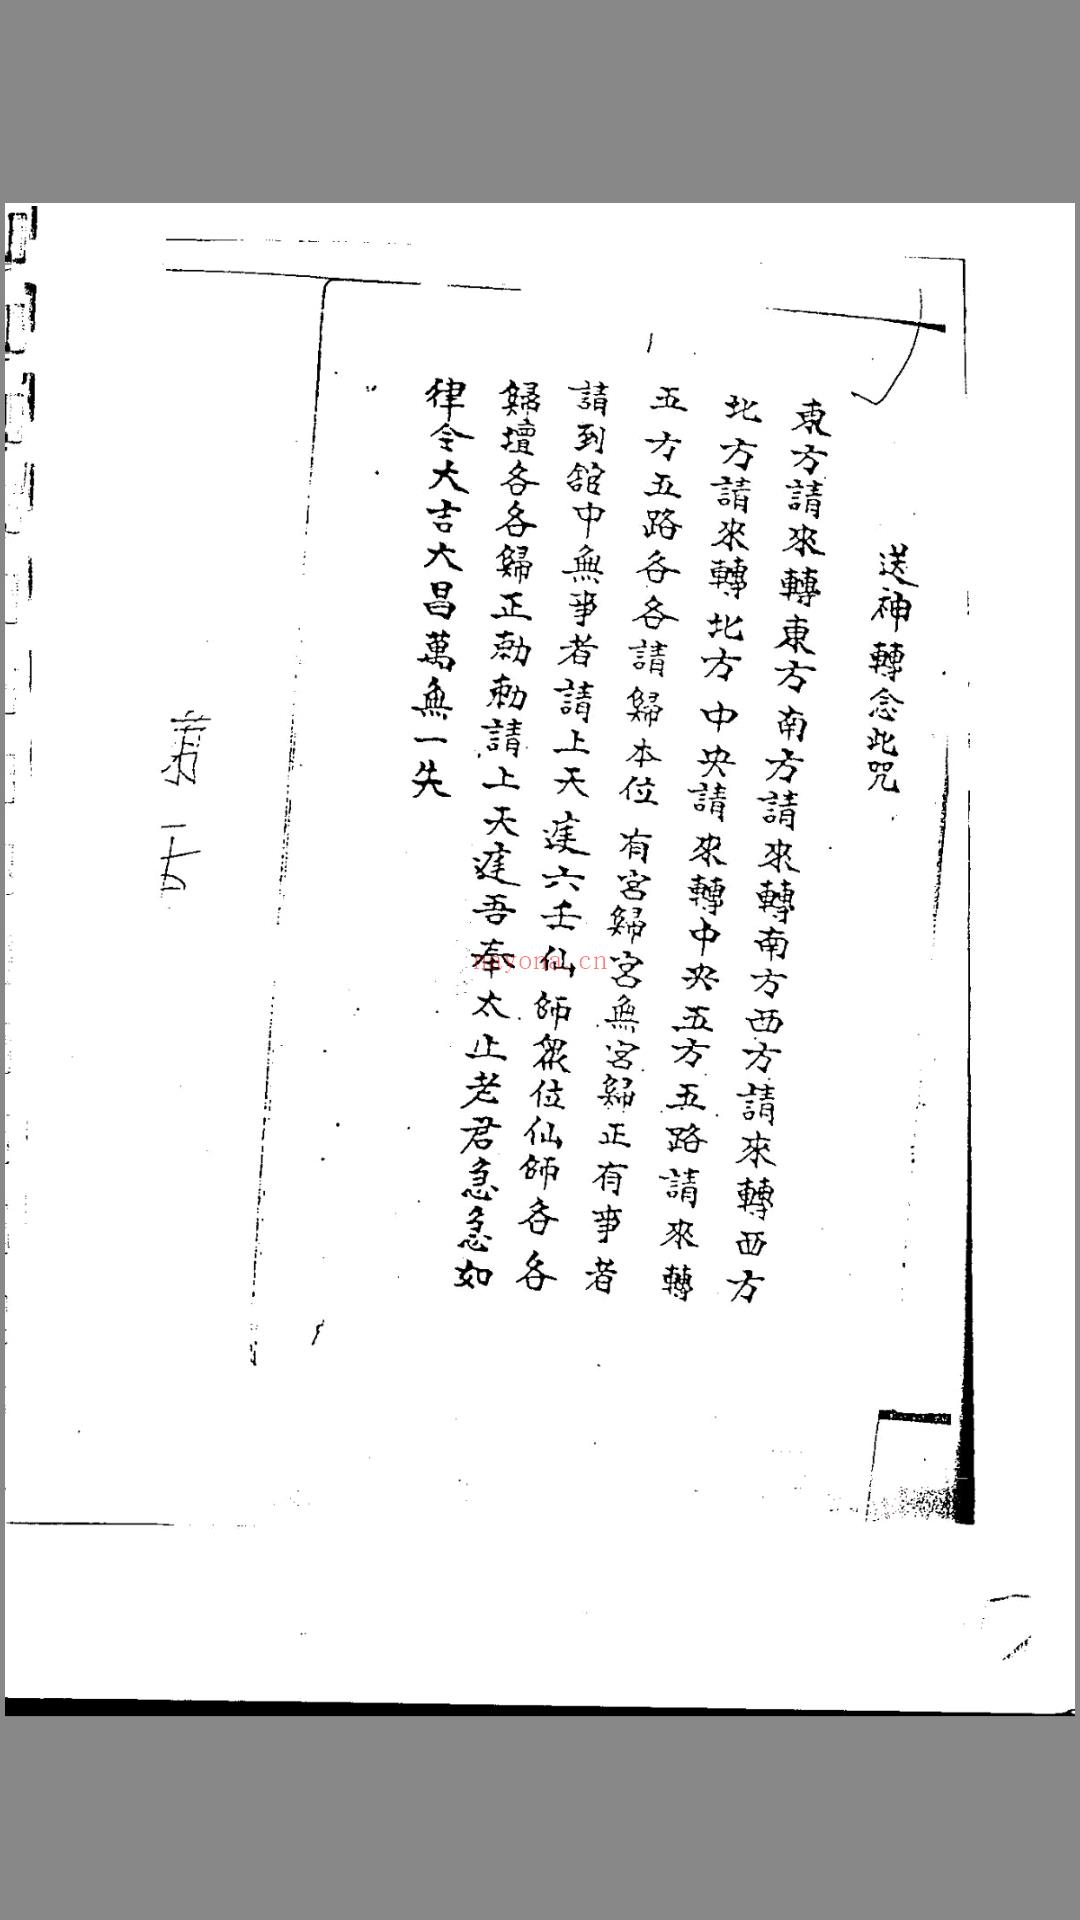 送神轉念此咒
東方請來轉東方南方請來轉南方西方請來轉西方
北方請來轉北方中央請來轉中央五方五路請來轉
五方五路各各請歸本位有宮歸宮無宮歸正有事者
請到舘中無事者請上天庭六壬仙師眾位仙師各各
歸壇各各歸正勅勅請上天庭吾奉太上老君急急如
律令大吉大昌萬無一失
nayona.cn